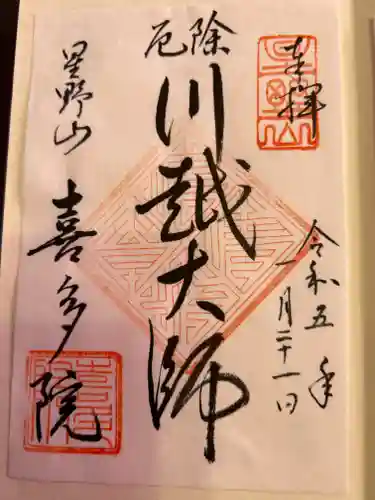 奉拝
令和五年
一月二十一日
厄除
川越大師
星野山
喜多院